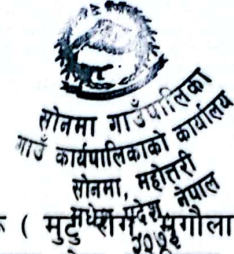 सोनमा गाउँपालिका
गाउँ कार्यपालिकाको कार्यालय
सोनमा, महोत्तरी
मधेश प्रदेश, नेपाल
२०७३
( मुटु रोग, मृगौला